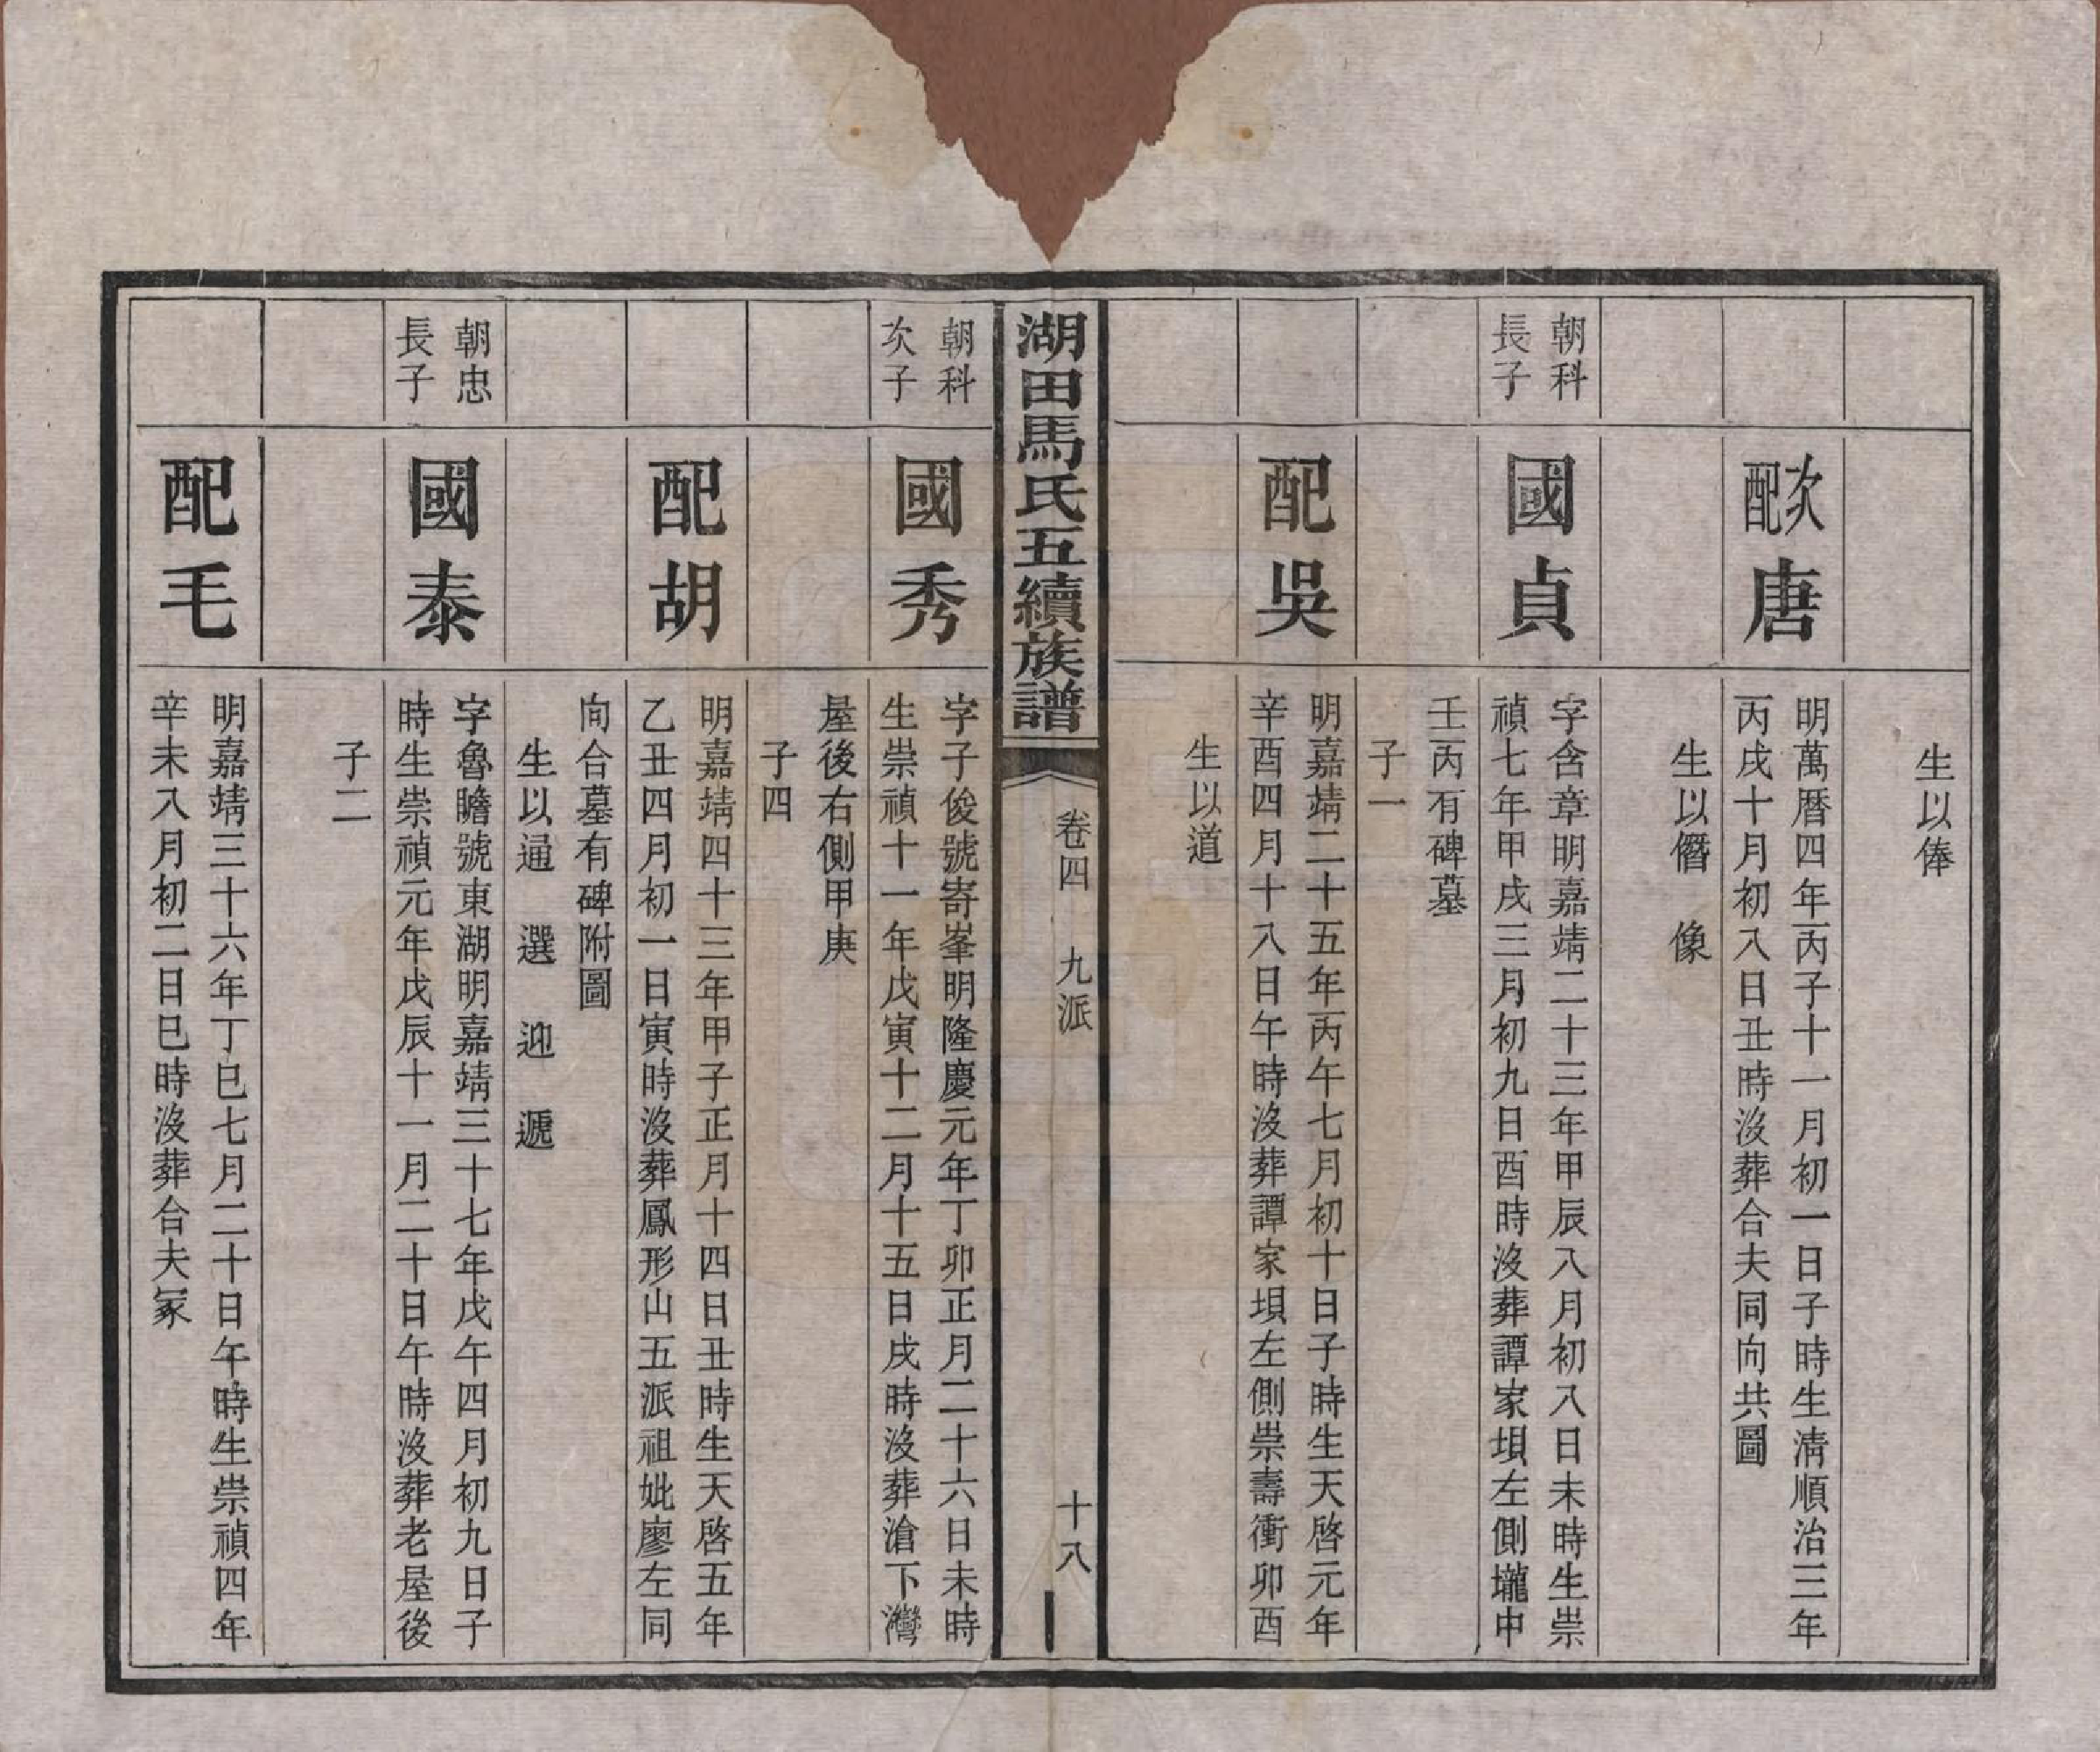 生以俸
次配唐
明萬曆四年丙子十一月初一日子時生清順治三年
丙戌十月初八日丑時沒葬合夫同向共圖
生以僭　像
朝科
長子
國貞
字含章明嘉靖二十三年甲辰八月初八日未時生崇
禎七年甲戌三月初九日酉時沒葬譚家垻左側壠中
壬丙有碑墓
子一
配吳
明嘉靖二十五年丙午七月初十日子時生天啓元年
辛酉四月十八日午時沒葬譚家垻左側崇壽衝卯酉
生以道
湖田馬氏五續族譜
卷四　九派
十八
朝科
次子
國秀
字子俊號寄峯明隆慶元年丁卯正月二十六日未時
生崇禎十一年戊寅十二月十五日戌時沒葬滄下灣
屋後右側甲庚
子四
配胡
明嘉靖四十三年甲子正月十四日丑時生天啓五年
乙丑四月初一日寅時沒葬鳳形山五派祖妣廖左同
向合墓有碑附圖
生以通　選　迎　遞
朝忠
長子
國泰
字魯瞻號東湖明嘉靖三十七年戊午四月初九日子
時生崇禎元年戊辰十一月二十日午時沒葬老屋後
子二
配毛
明嘉靖三十六年丁巳七月二十日午時生崇禎四年
辛未八月初二日巳時沒葬合夫冢